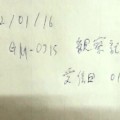 2/01/16
GM-0715 観察記
受信日 01